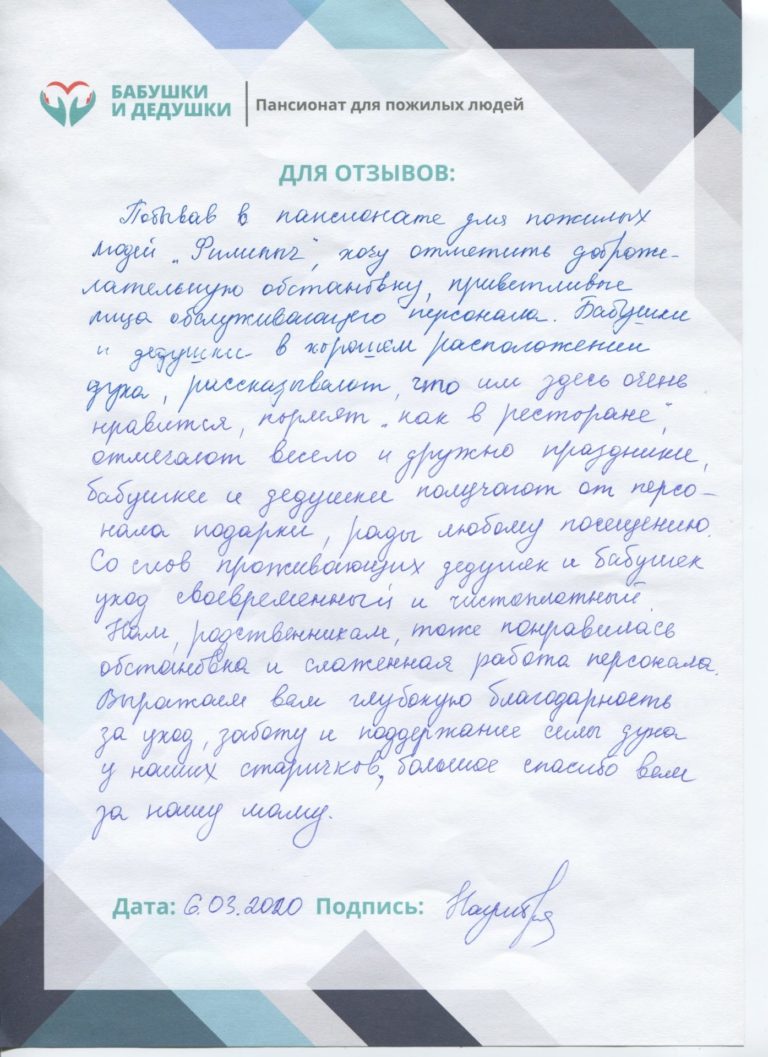 БАБУШКИ
И ДЕДУШКИ
Пансионат для пожилых людей
ДЛЯ ОТЗЫВОВ:
Побывав в пансионате для пожилых
людей „Филипыч“, хочу отметить доброже-
лательную обстановку, приветливые
лица обслуживающего персонала. Бабушки
и дедушки в хорошем расположении
духа, рассказывают, что им здесь очень
нравится, кормят „как в ресторане“,
отмечают весело и дружно праздники,
бабушки и дедушки получают от персо-
нала подарки, рады любому посещению.
Со слов проживающих дедушек и бабушек
уход своевременный и чистоплотный.
Нам, родственникам, тоже понравилась
обстановка и слаженная работа персонала.
Выражаем вам глубокую благодарность
за уход, заботу и поддержание силы духа
у наших старичков, большое спасибо вам
за нашу маму.
Дата: 6.03.2020 Подпись: